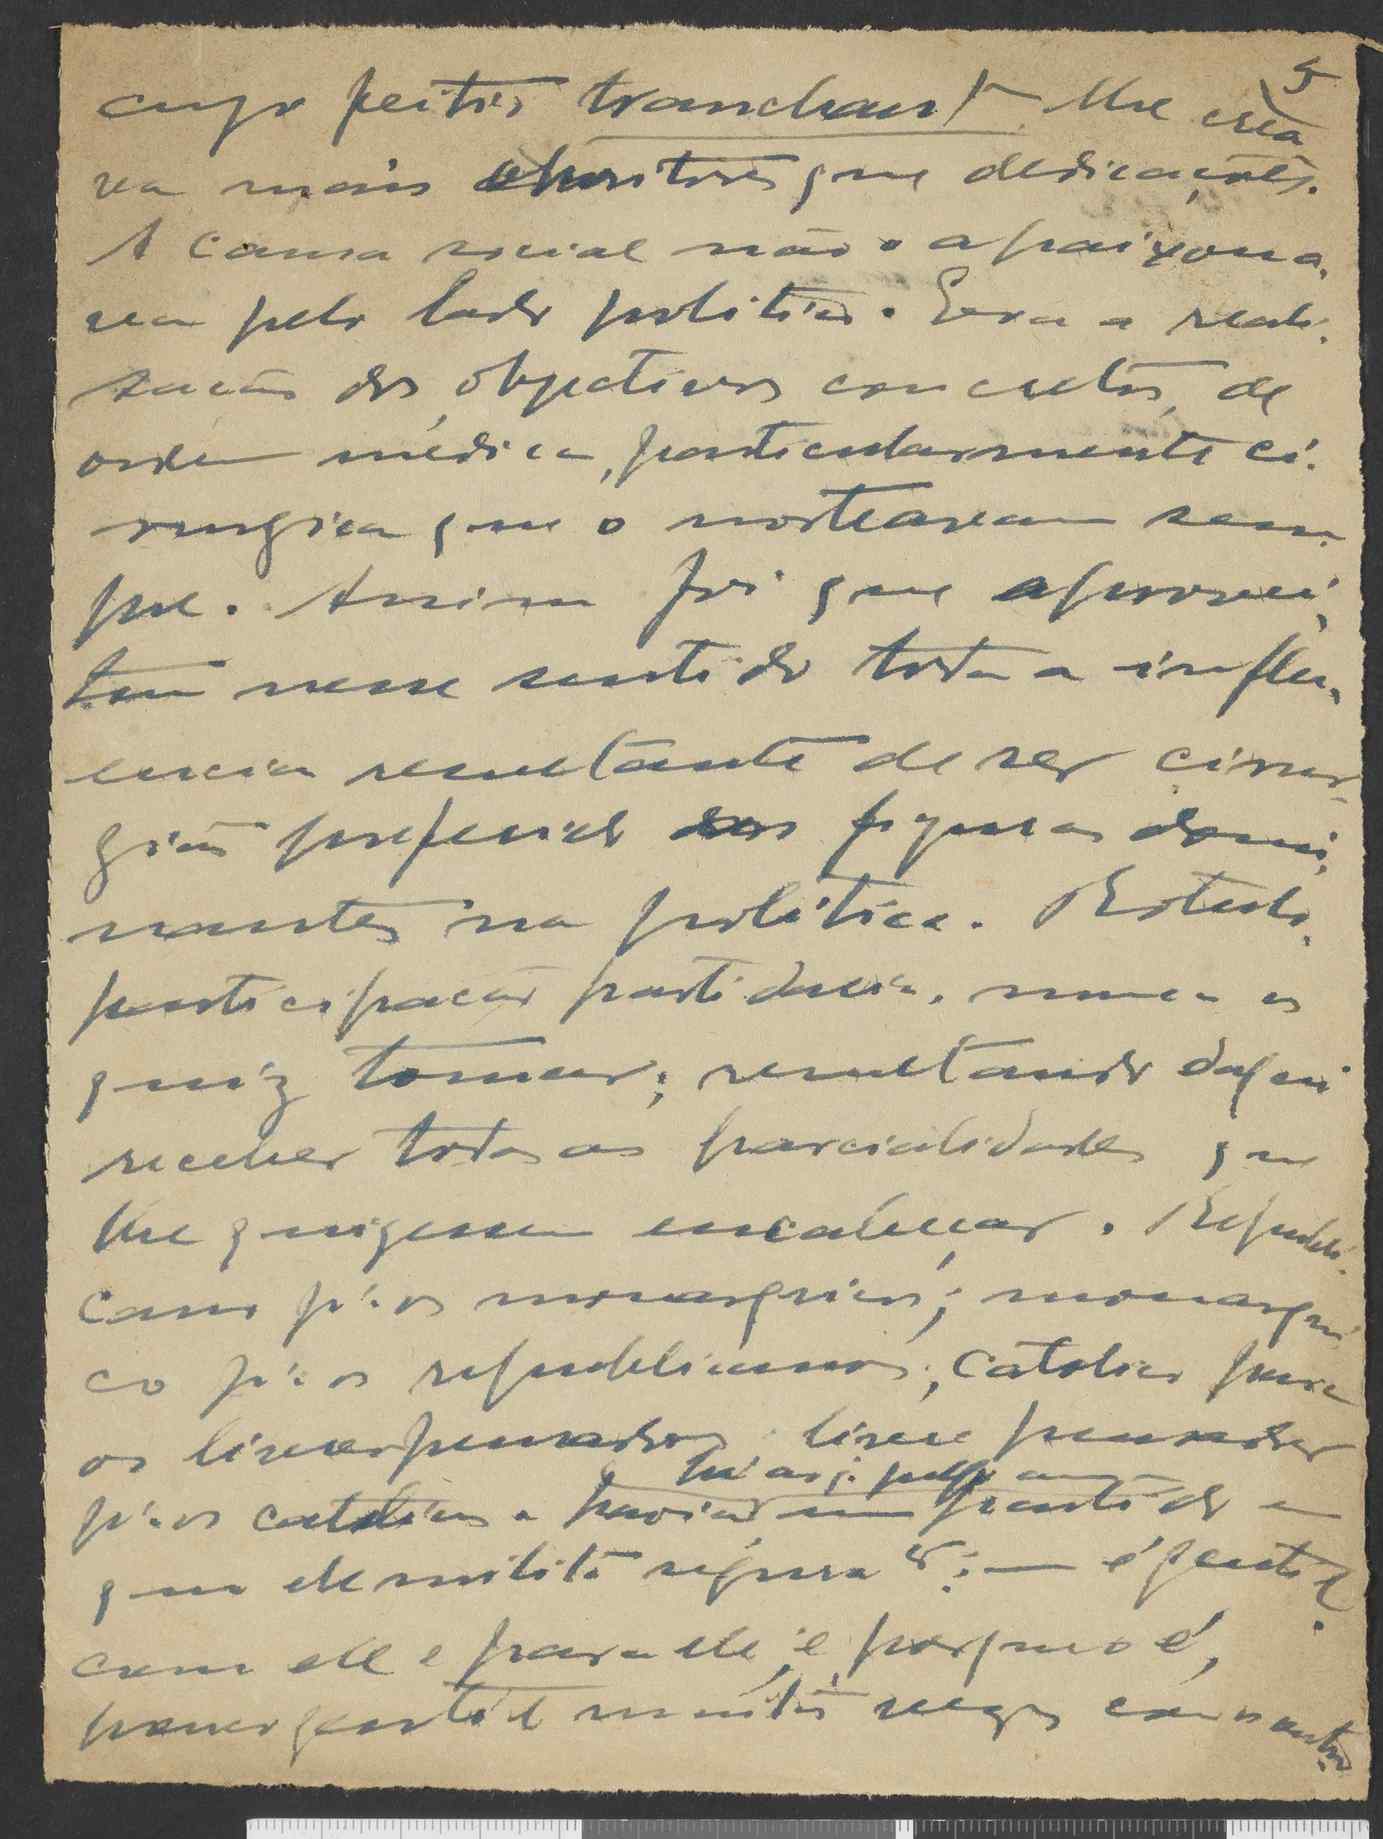 5
cujo feitio tranchant lhe crea
va mais que dedicações.
A causa social não o apaixona-
va pelo lado politico. Era a reali-
sação dos objectivos concretos, de
ordem médica, particularmente ci-
rurgica que o norteavam sem-
pre. Assim foi que aproveei-
tou nesse sentido toda a influ-
encia resultante de ser cirur-
gião preferido das figuras domi-
nantes na politica.
participação partidaria, nunca as
quiz tomar; resultando daqui
receber todas as parcialidades que
lhe quizessem encabeçar. Republi-
cano p'ra os monarquicos; monarqui
co p'ra os republicanos; catolico para
os livres pensadores, livre pensador
p'ra os catolicos havia um partido em
que ele milita
com ele e para ele; e porque o é,
muitas vezes com os outros